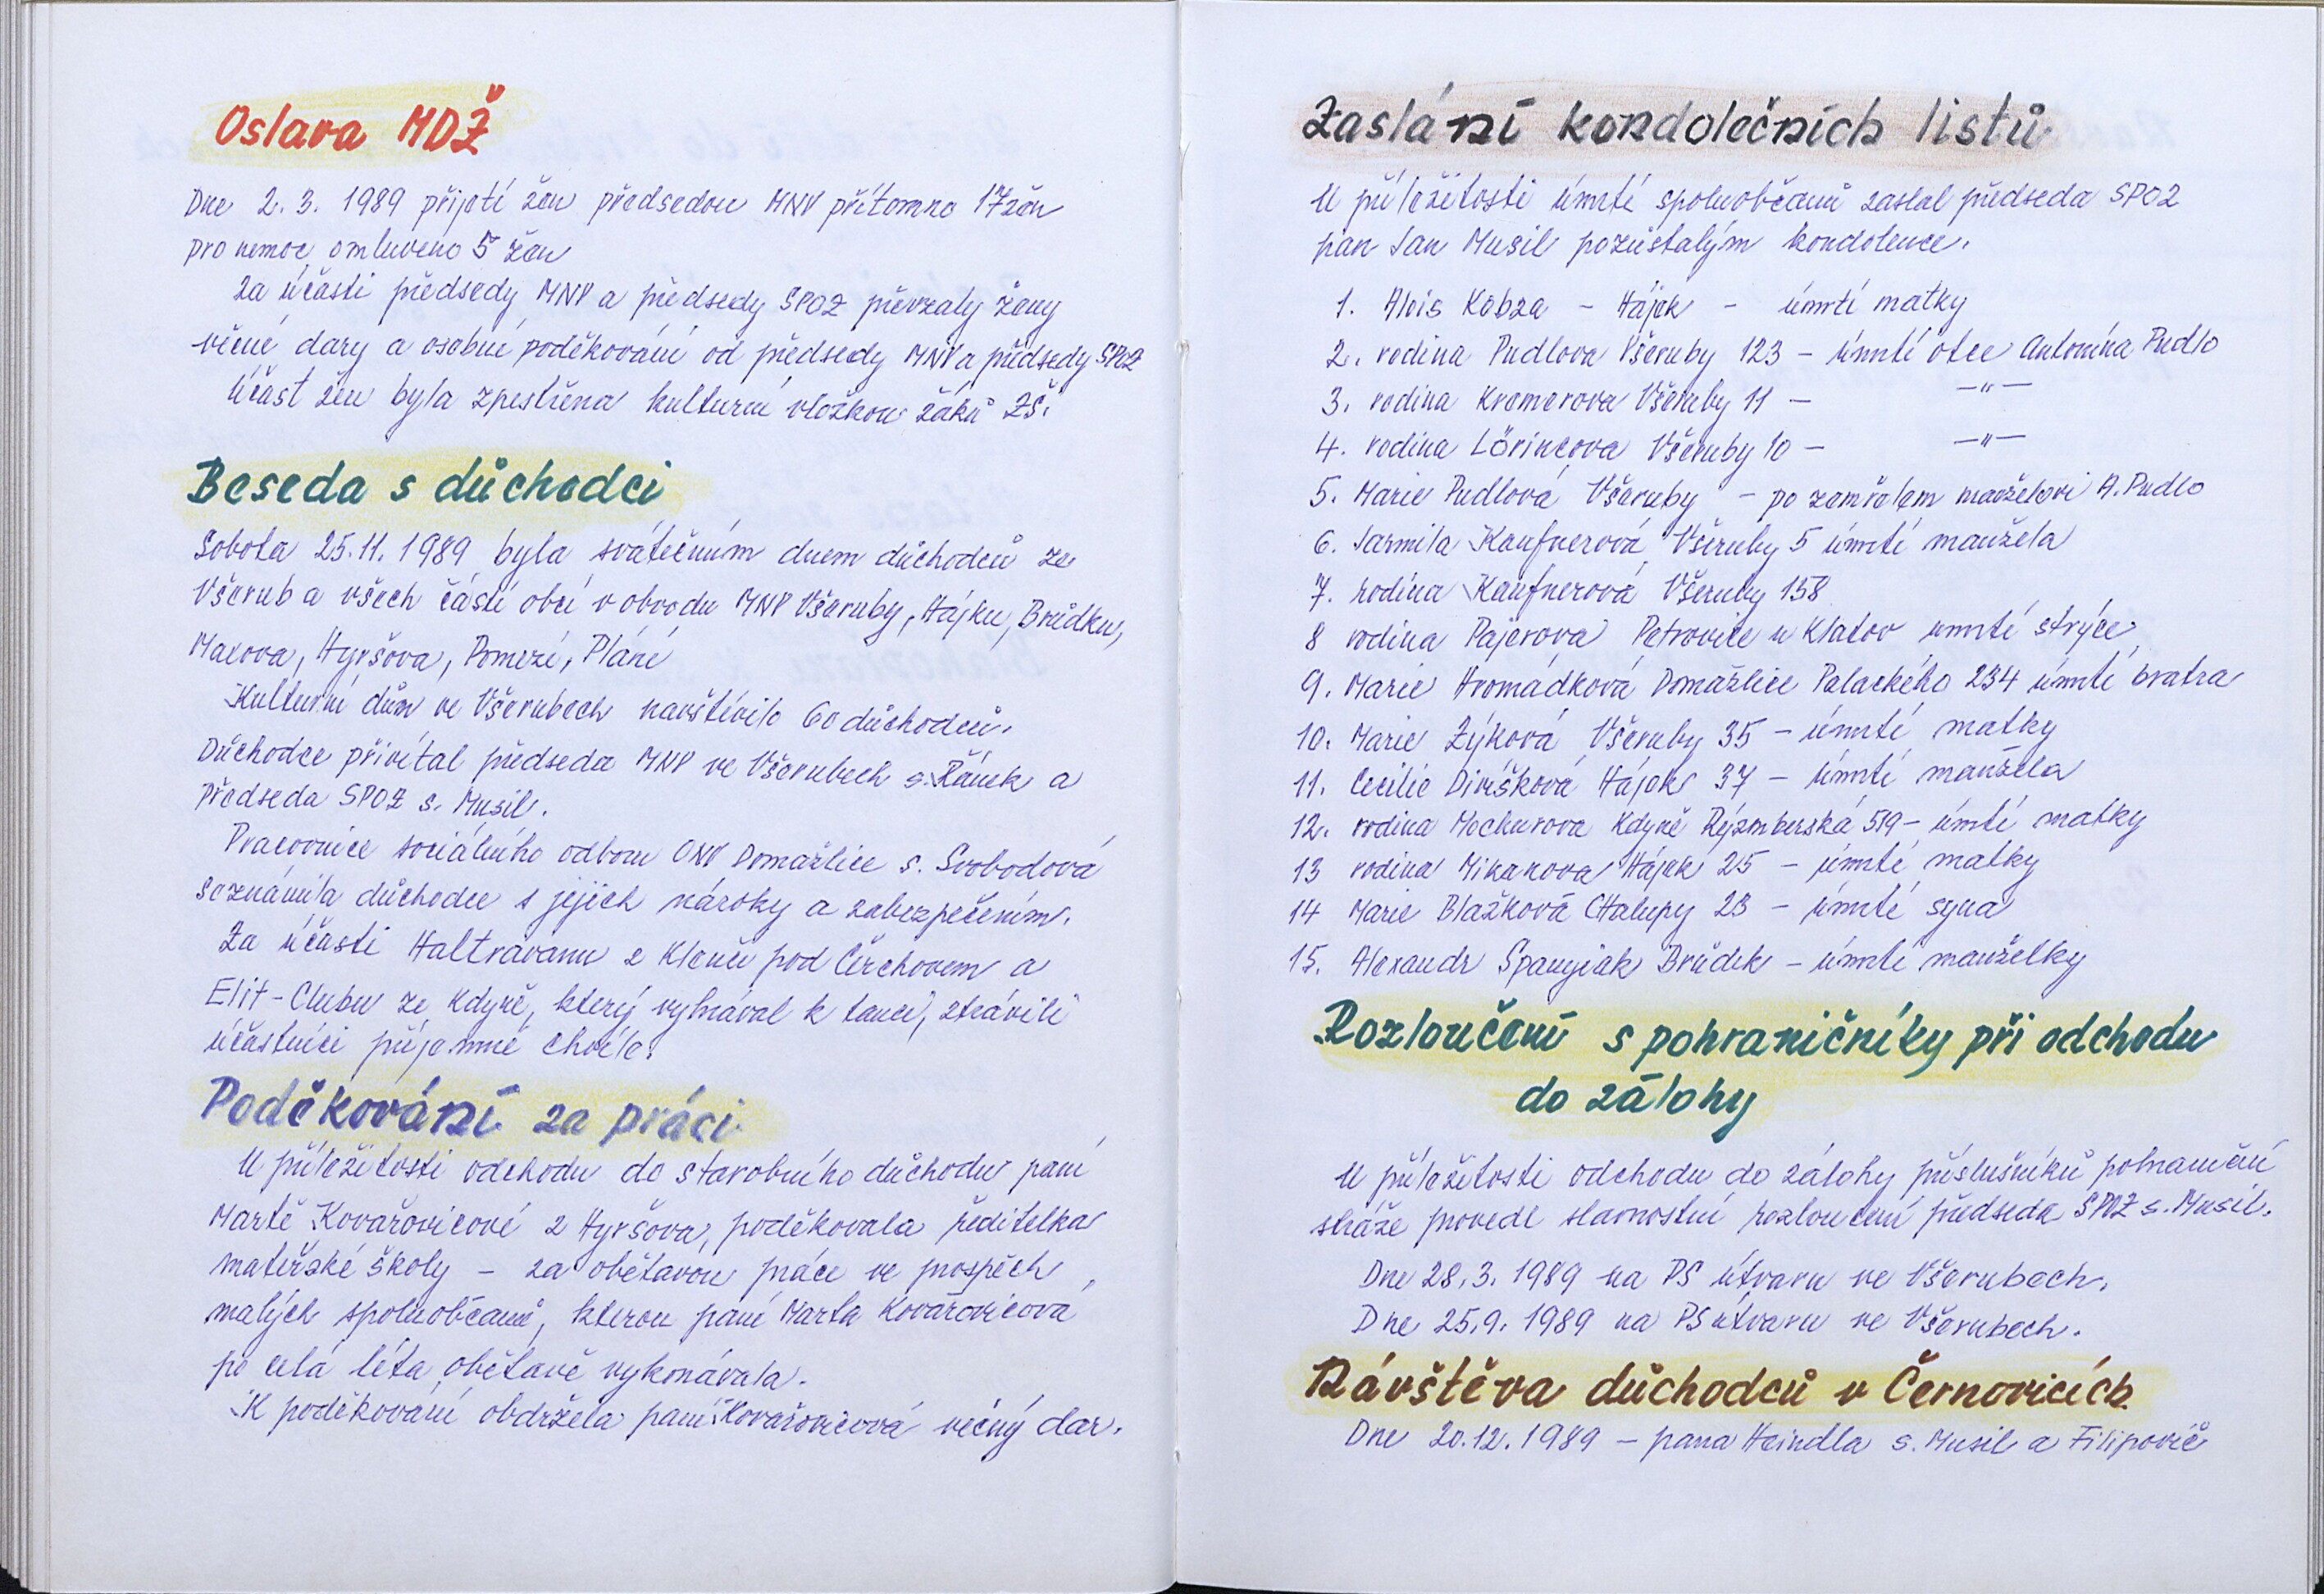 Oslava MDŽ
Dne 2. 3. 1989 přijetí žen předsedou MNV přítomno 17 žen
pro nemoc omluveno 5 žen
Za účasti předsedy MNV a předsedy SPOZ převzaly ženy
věcné dary a osobní poděkování od předsedy MNV a předsedy SPOZ
Účast žen byla zpestřena kulturní vložkou žáků ZŠ.
Beseda s důchodci
Sobota 25.11.1989 byla svátečním dnem důchodců ze
Všerub a všech částí obcí v obvodu MNV Všeruby, Hájku, Brůdku,
Maxova, Hyršova, Pomezí, Pláně
Kulturní dům ve Všerubech navštívilo 60 důchodců.
Důchodce přivítal předseda MNV ve Všerubech s. Řánek a
Předseda SPOZ s. Musil.
Pracovnice sociálního odboru ONV Domažlice s. Svobodová
seznámila důchodce s jejich nároky a zabezpečením.
Za účasti Haltravanu z Klenčí pod Čerchovem a
Elit-Clubu ze Kdyně, který vyhrával k tanci, ztrávili
účastníci příjemné chvíle.
Poděkování za práci
U příležitosti odchodu do starobního důchodu paní
Martě Kovařovicové z Hyršova, poděkovala ředitelka
mateřské školy – za obětavou práci ve prospěch
malých spoluobčanů, kterou paní Marta Kovařovicová
po celá léta obětavě vykonávala.
K poděkování obdržela paní Kovařovicová věcný dar.
Zaslání kondolečních listů
U příležitosti úmrtí spoluobčanů zaslal předseda SPOZ
pan Jan Musil pozůstalým kondolence.
1. Alois Kobza – Hájek – úmrtí matky
2. rodina Pudlova Všeruby 123 – úmrtí otce Antonína Pudlo
3. rodina Kremerova Všeruby 11 – –"–
4. rodina Lörincova Všeruby 10 – –"–
5. Marie Pudlová Všeruby – po zemřelém manželovi A. Pudlo
6. Jarmila Kaufnerová Všeruby 5 úmrtí manžela
7. rodina Kaufnerová Všeruby 158
8 rodina Pajerova Petrovice u Klatov úmrtí strýce
9. Marie Hromádková Domažlice Palackého 234 úmrtí bratra
10. Marie Zýková Všeruby 35 – úmrtí matky
11. Cecilie Divišková Hájek 37 – úmrtí manžela
12. rodina Mochurova Kdyně Rýzmberská 519 – úmtí matky
13 rodina Mikanova Hájek 25 – úmrtí matky
14 Marie Blažková CHalupy 23 – úmrtí syna
15. Alexandr Španyiak Brůdek – úmrtí manželky
Rozloučení s pohraničníky při odchodu
do zálohy
U příležitosti odchodu do zálohy příslušníků pohraniční
stráže provedl slavnostní rozloučení předseda SPOZ s. Musil.
Dne 28.3. 1989 na PS útvaru ve Všerubech.
Dne 25.9. 1989 na PS útvaru ve Všerubech.
Návštěva důchodců v Černovicích
Dne 20.12.1989 – pana Heindla s. Musil a Filipovič